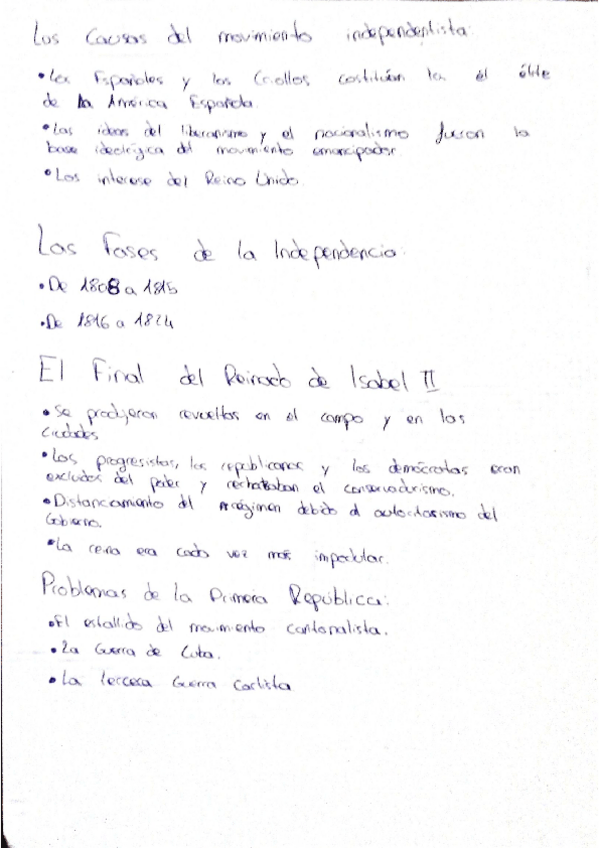 Las Causas del movimiento independentista:
• Los Españoles y los Criollos costituían la el élite
de la América Española.
• Las ideas del liberarismo y el nacionalismo fueron la
base ideológica del movimiento emancipador.
• Los interese del Reino Unido.
Las Fases de la Independencia:
• De 1808 a 1815
• De 1816 a 1824
El Final del Reinado de Isabel II
• Se produjeron revueltas en el campo y en las
ciudades
• Los progresistas, los republicanos y los demócratas eran
excluidos del poder y rechataban el conservadurismo.
• Distanciamiento del régimen debido al autoritarismo del
Gobierno.
• La reina era cada vez más impopular.
Problemas de la Primera República:
• El estallido del movimiento cantonalista.
• La Guerra de Cuba.
• La tercera Guerra Carlista